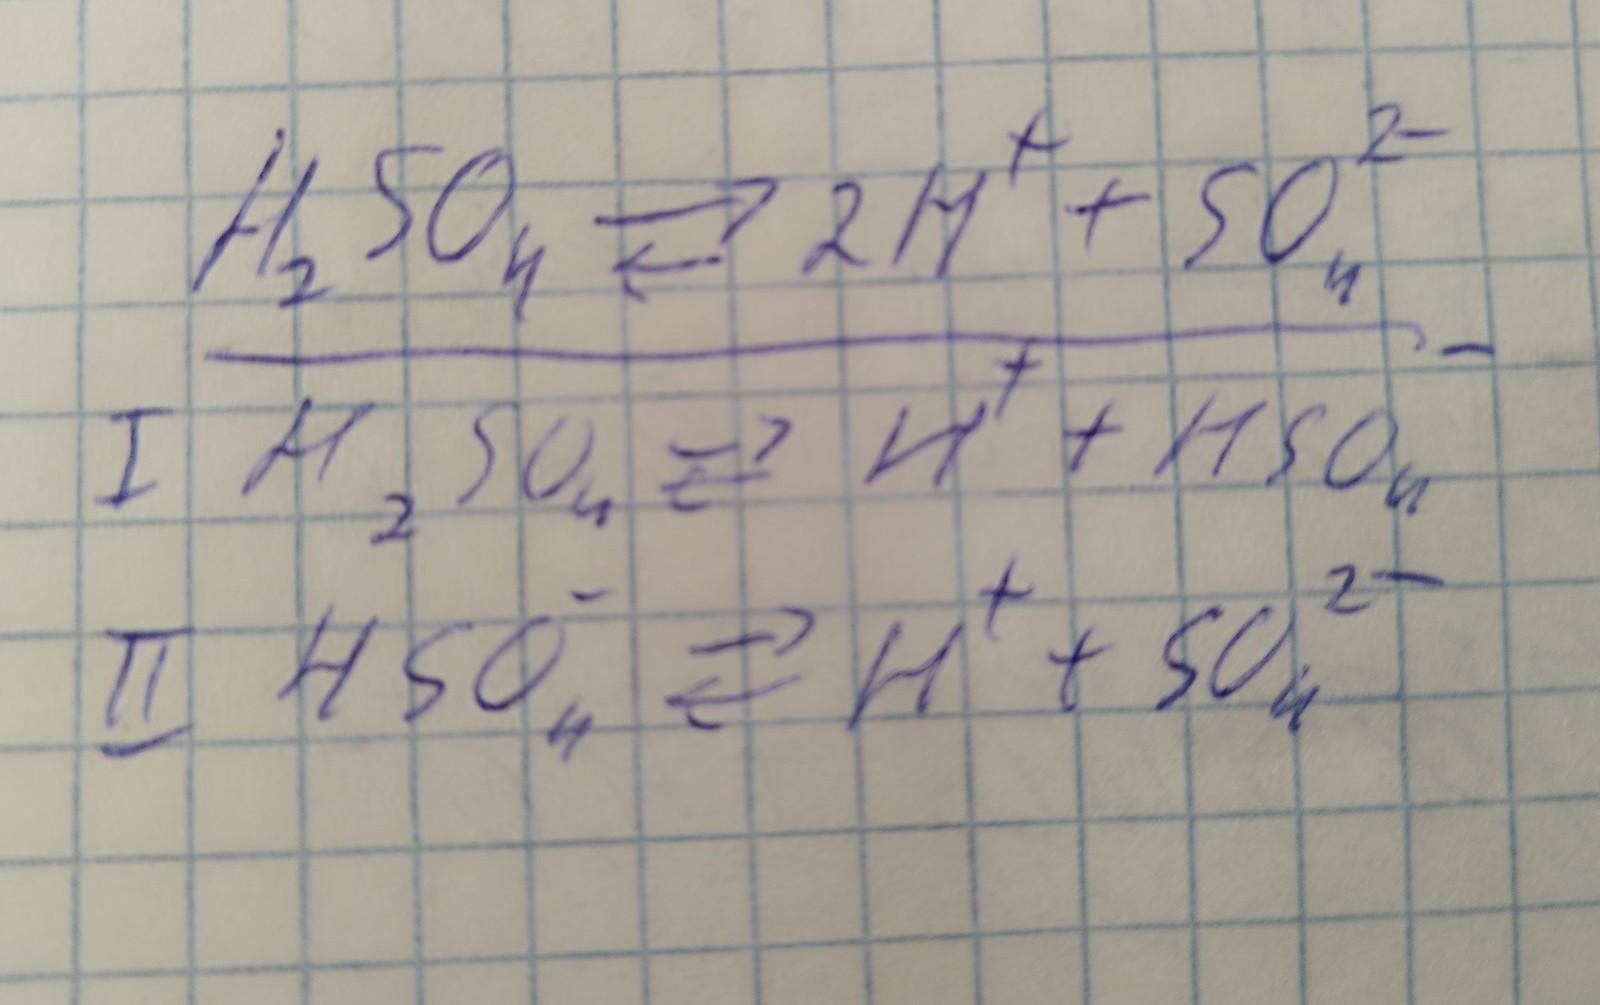 H₂SO₄ ⇄ 2H⁺ + SO₄²⁻
I H₂SO₄ ⇄ H⁺ + HSO₄⁻
II HSO₄⁻ ⇄ H⁺ + SO₄²⁻